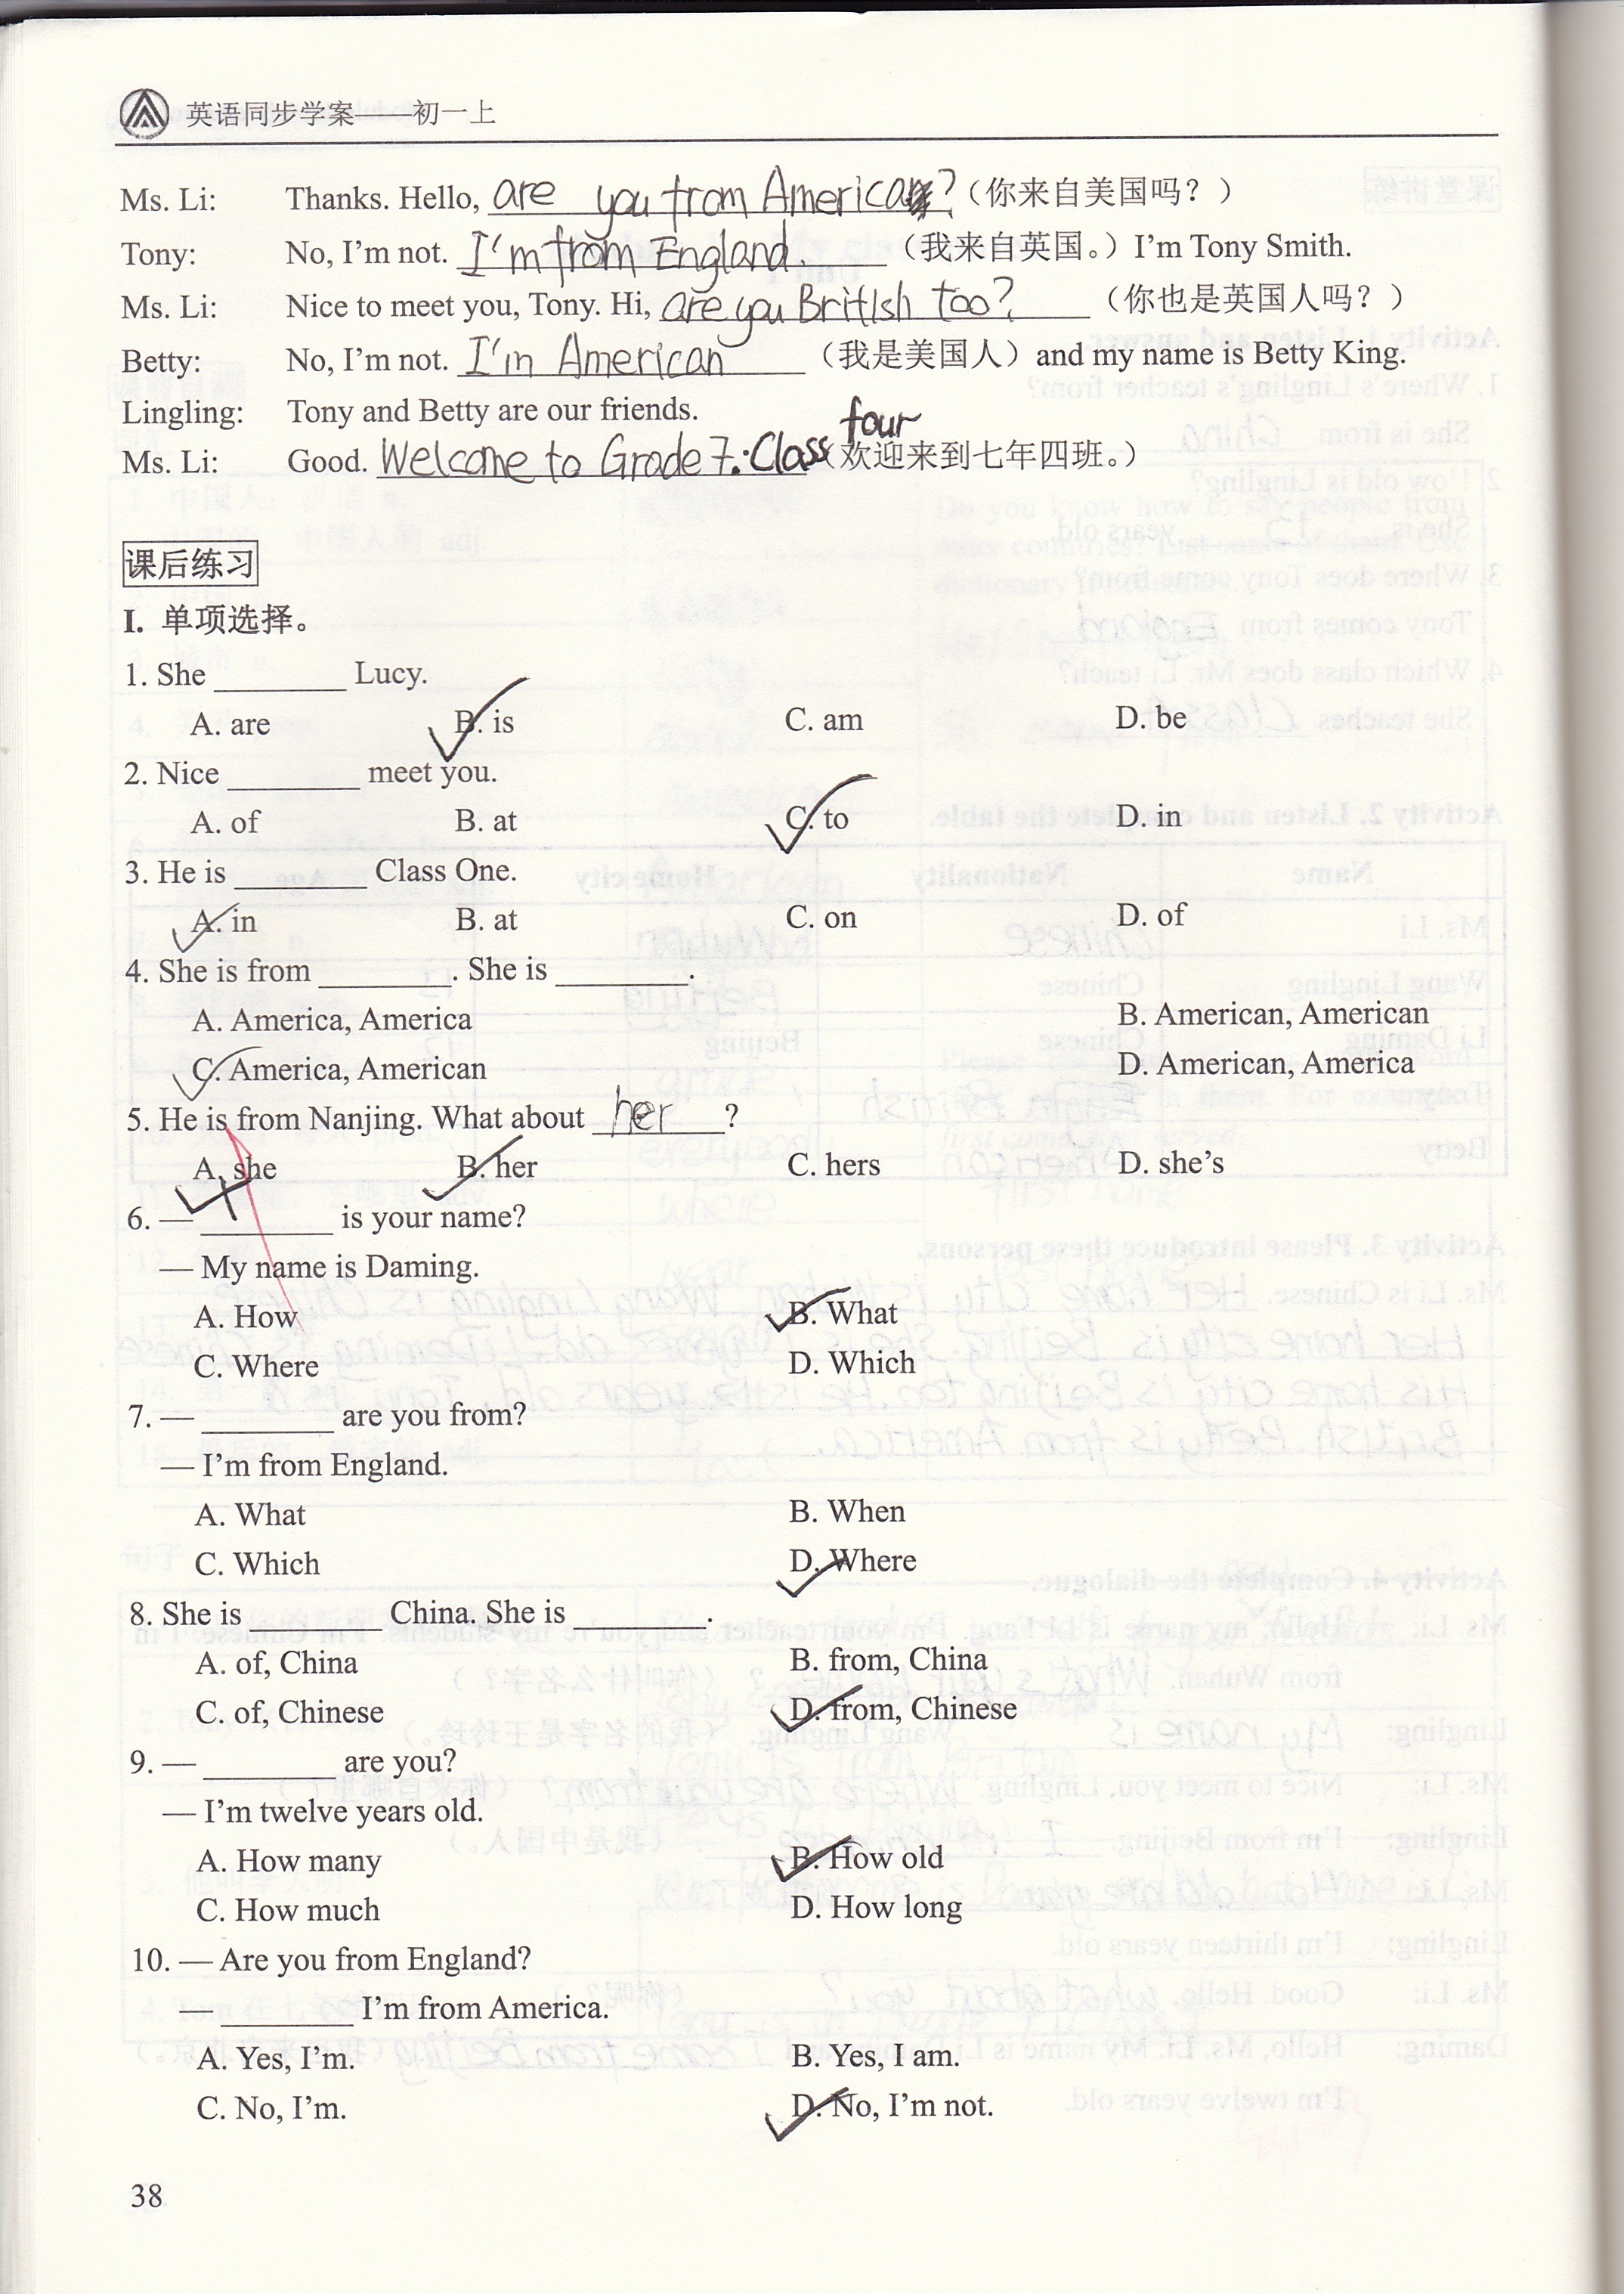 英语同步学案——初一上
Ms. Li: Thanks. Hello, are you from America?（你来自美国吗？）
Tony: No, I'm not. I'm from England.（我来自英国。）I'm Tony Smith.
Ms. Li: Nice to meet you, Tony. Hi, are you British too?（你也是英国人吗？）
Betty: No, I'm not. I'm American（我是美国人）and my name is Betty King.
Lingling: Tony and Betty are our friends.
four
Ms. Li: Good. Welcome to Grade 7. Class（欢迎来到七年四班。）
课后练习
I. 单项选择。
1. She ________ Lucy.
A. are B. is C. am D. be
2. Nice ________ meet you.
A. of B. at C. to D. in
3. He is ________ Class One.
A. in B. at C. on D. of
4. She is from ________. She is ________.
A. America, America B. American, American
C. America, American D. American, America
5. He is from Nanjing. What about her?
A. she B. her C. hers D. she's
6. — ________ is your name?
— My name is Daming.
A. How B. What
C. Where D. Which
7. — ________ are you from?
— I'm from England.
A. What B. When
C. Which D. Where
8. She is ________ China. She is ________.
A. of, China B. from, China
C. of, Chinese D. from, Chinese
9. — ________ are you?
— I'm twelve years old.
A. How many B. How old
C. How much D. How long
10. — Are you from England?
— ________ I'm from America.
A. Yes, I'm. B. Yes, I am.
C. No, I'm. D. No, I'm not.
38